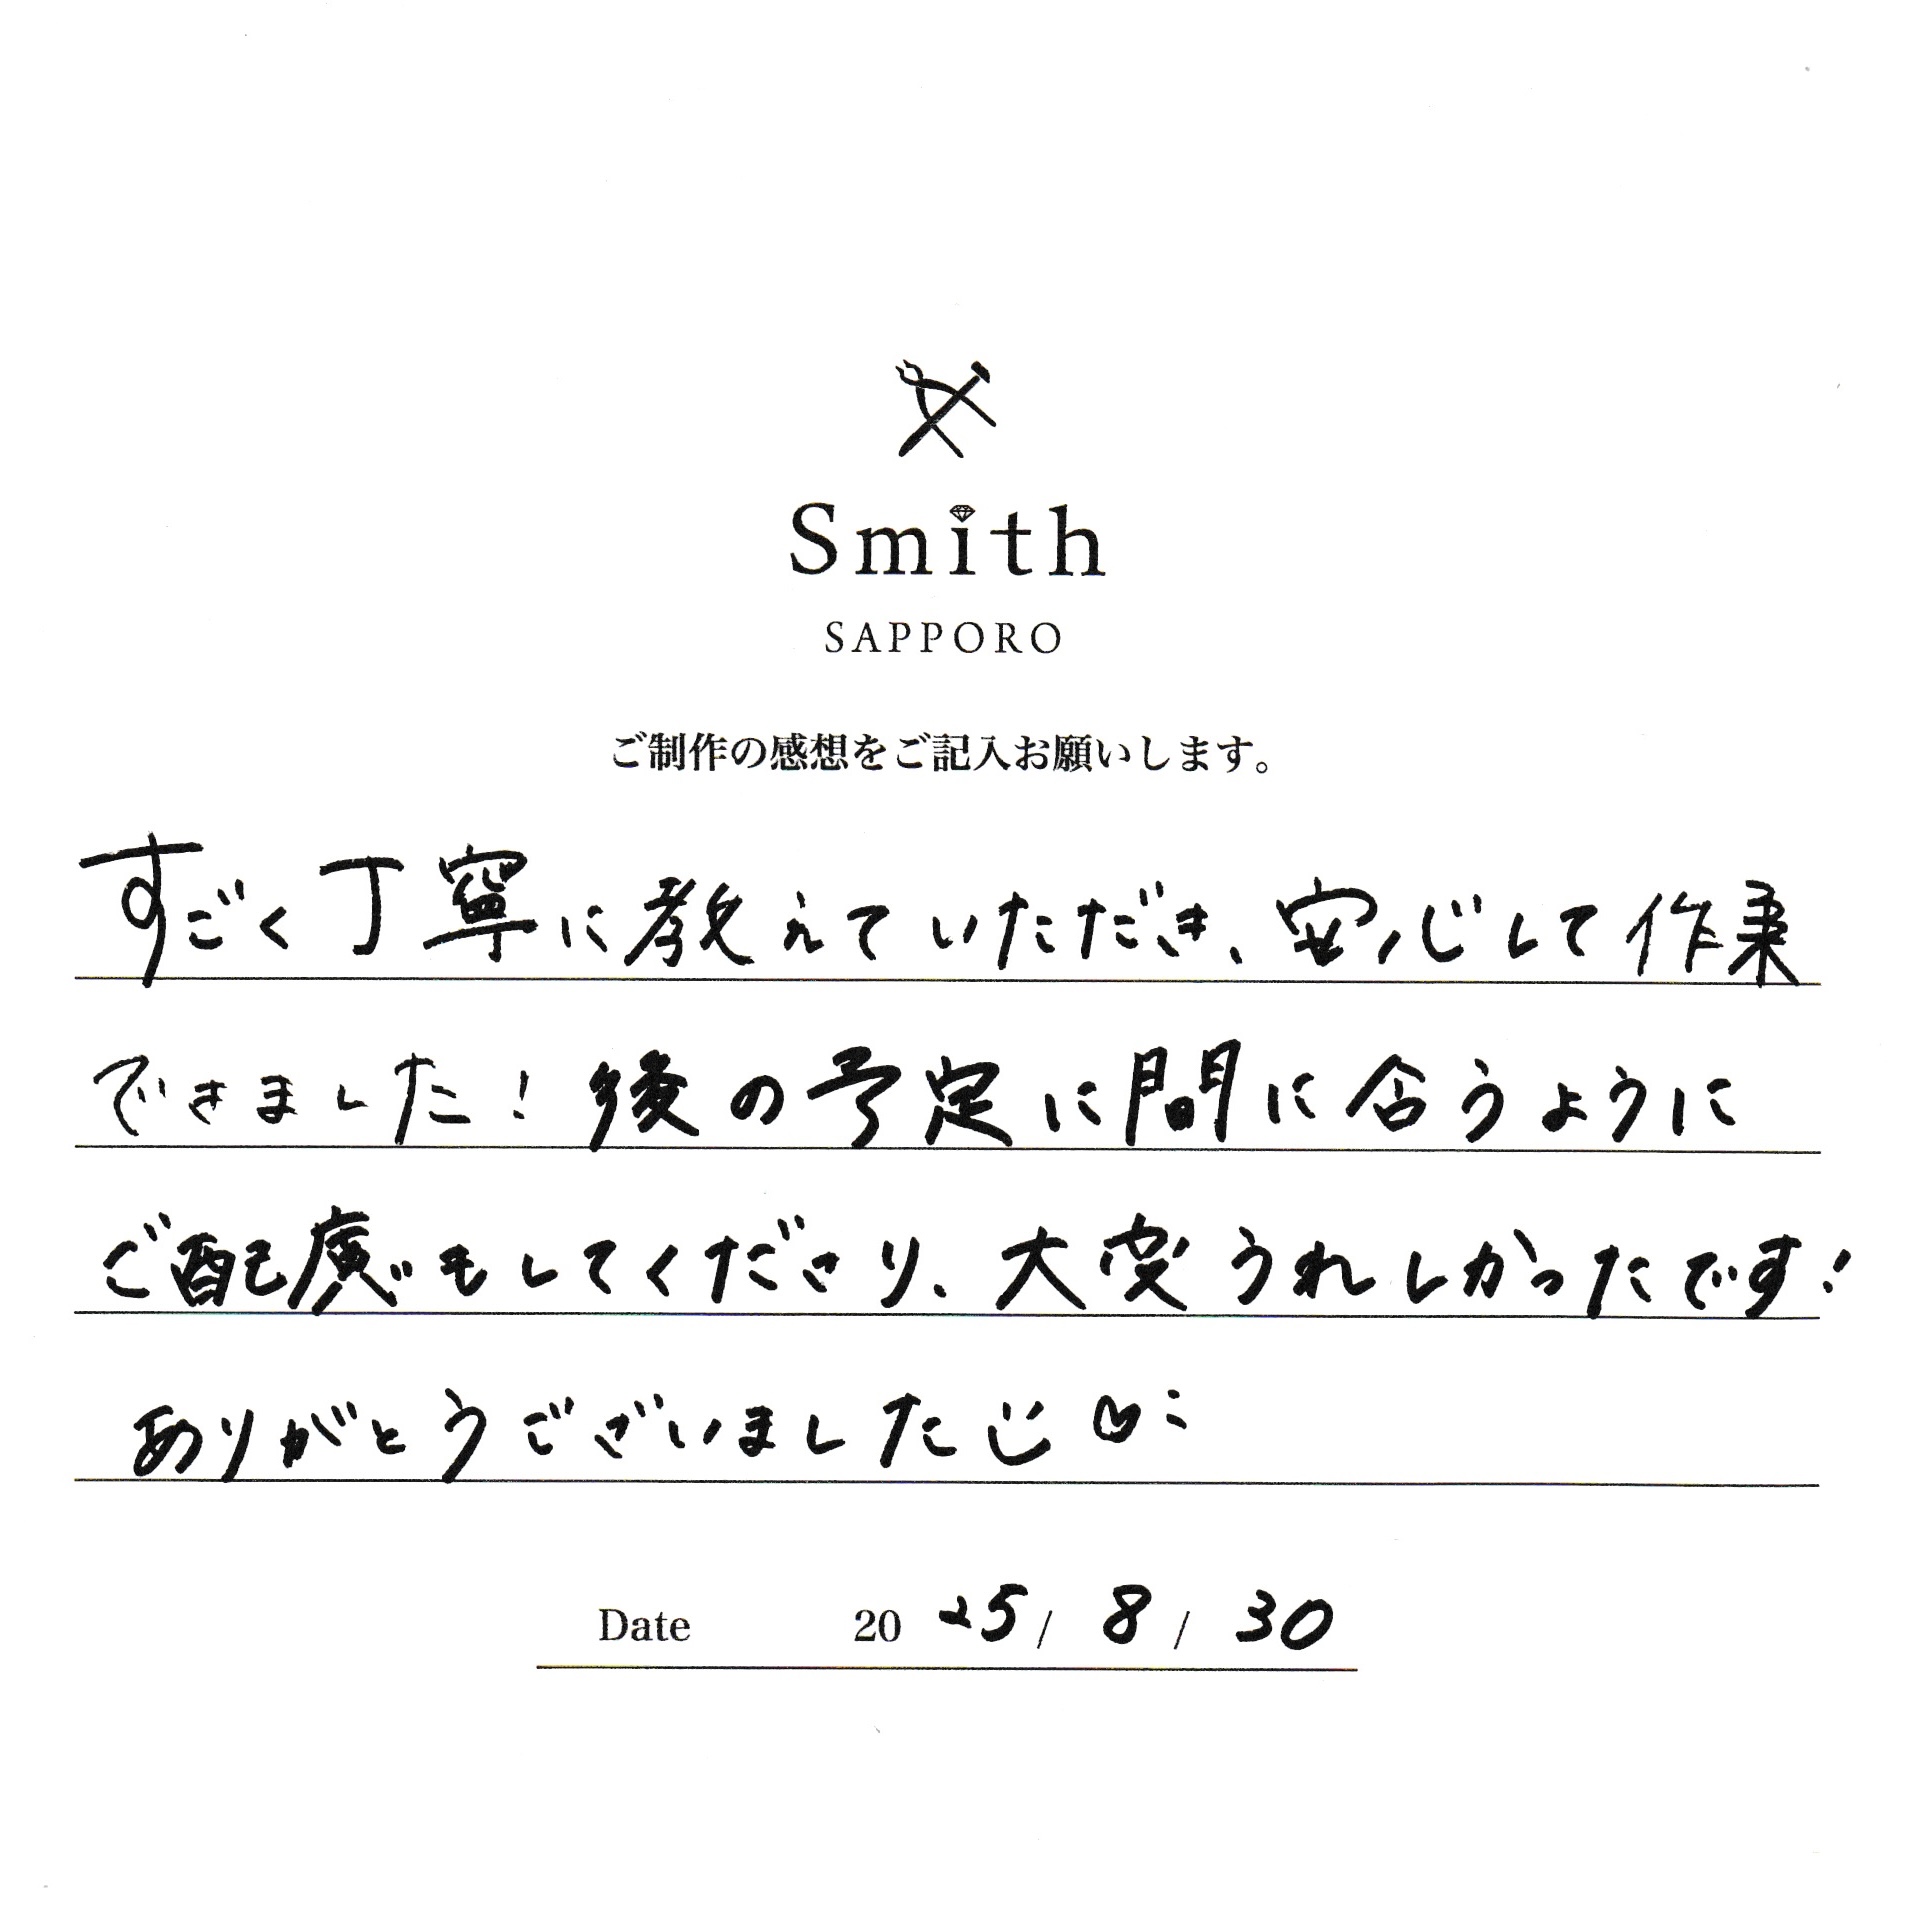 Smith
SAPPORO
ご制作の感想をご記入お願いします。
すごく丁寧に教えていただき、安心して作業
できました！後の予定に間に合うように
ご配慮もしてくださり、大変うれしかったです！
ありがとうございました
Date 2025/8/30